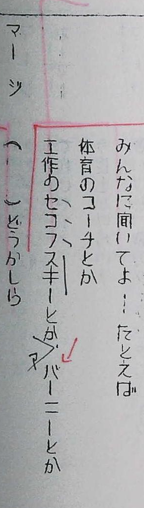 みんなに聞いてよ…たとえば
体育のコーチとか
工作のセコフスキーとか
バーニーとか
ア
マージ
（ー）どうかしら